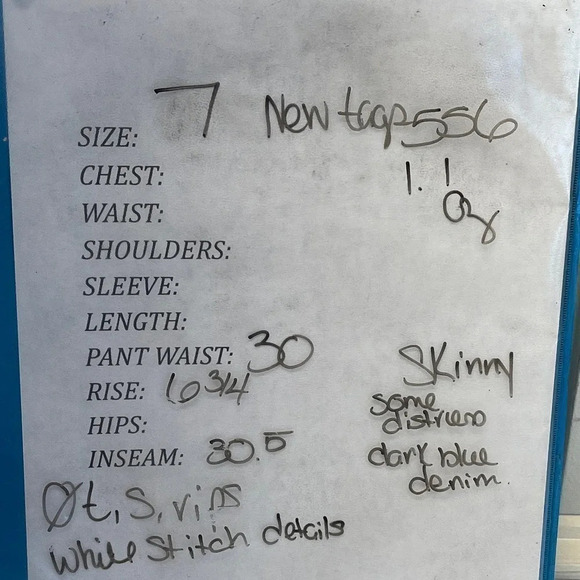 SIZE: 7 New tags 556
CHEST: 1.1
WAIST: Oz
SHOULDERS:
SLEEVE:
LENGTH:
PANT WAIST: 30
RISE: 10 3/4 Skinny
HIPS: some distress
INSEAM: 30.5 dark blue denim.
Øt, S, rips
While Stitch details